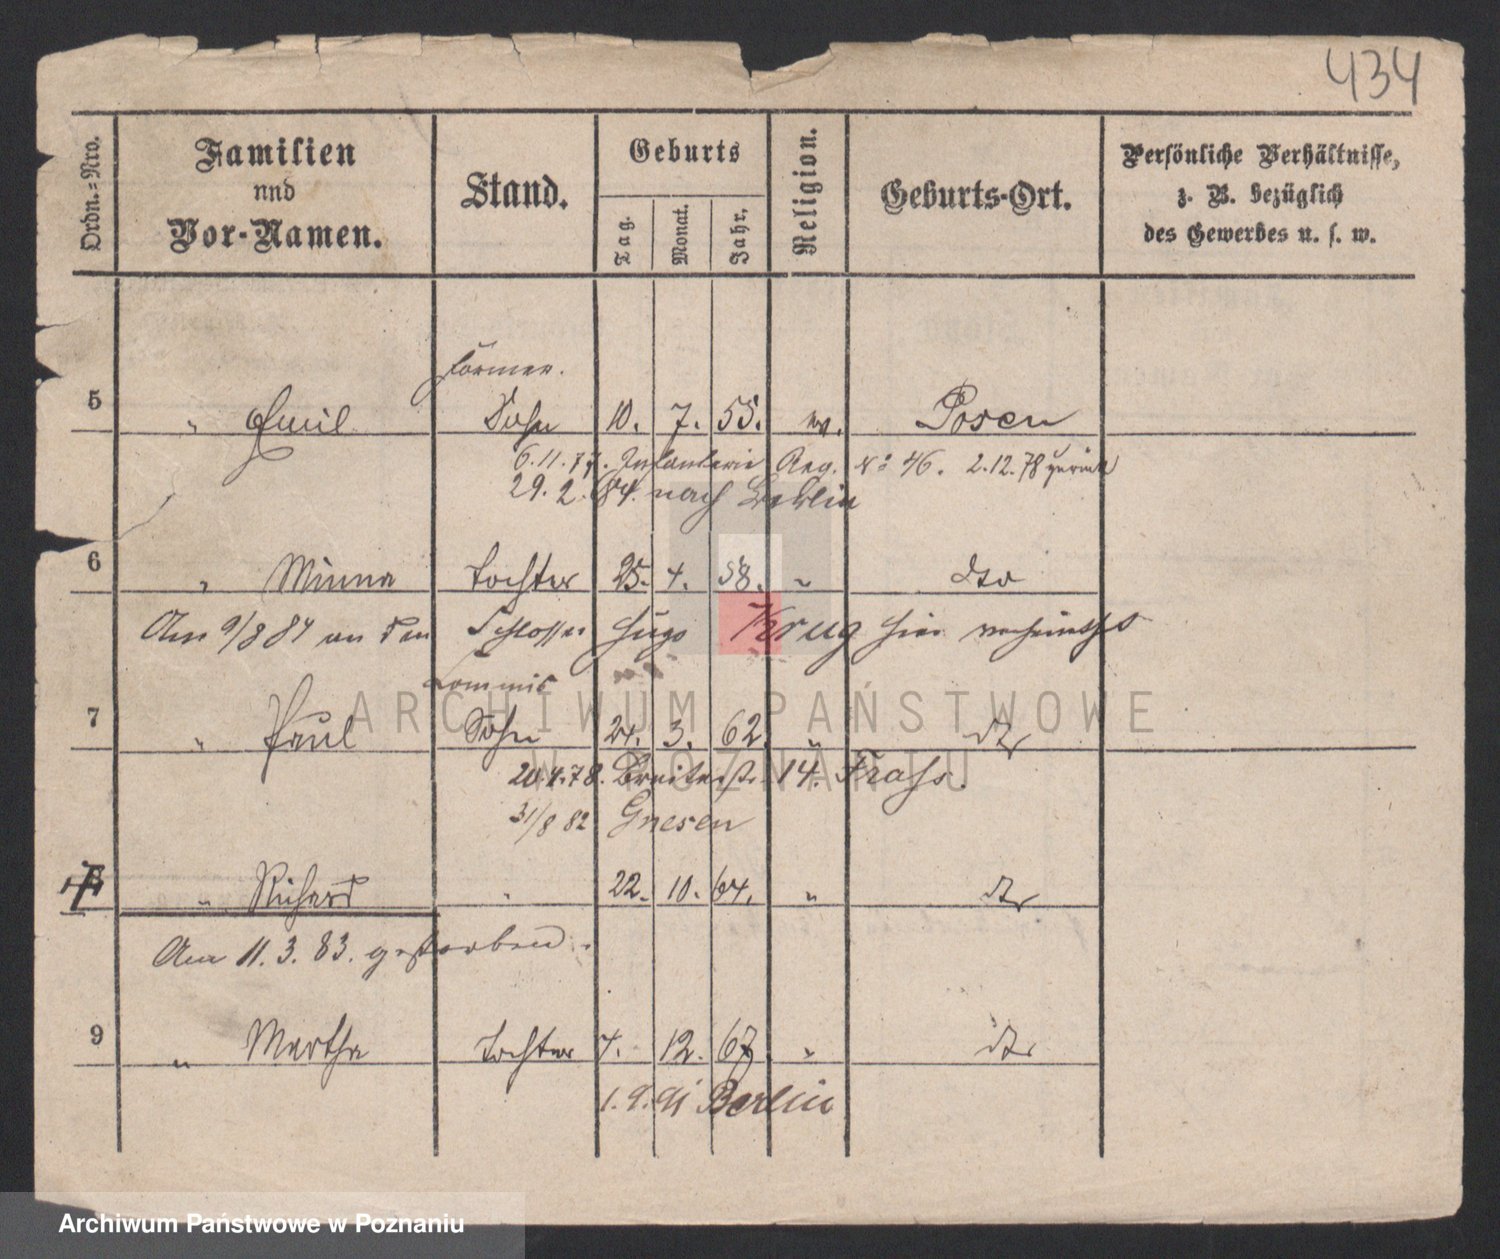 434
Ordn.=Nro.
Familien
und
Vor-Namen.
Stand.
Geburts
Tag.
Monat.
Jahr.
Religion.
Geburts-Ort.
Persönliche Verhältnisse,
z. B. bezüglich
des Gewerbes u. s. w.
Former.
5 " Emil Sohn 10. 7. 55. ev. Posen
6.11.77. Infanterie Reg. No 46. 2.12.78 zurück
29. 2. 84. nach Berlin
6 " Minna Tochter 25. 4. 58. " dto
Am 9/8 84 an den Schlosser Hugo Krug hier verheirathet
Commis
7 " Paul Sohn 24. 3. 62. " dto
20.4.78. Breitestr. 14.
31/8 82 Gnesen
8 " Richard " 22. 10. 64. " dto
Am 11.3.83. gestorben.
9 " Martha Tochter 4. 12. 67 " dto
1.9.91 Berlin
ARCHIWUM PAŃSTWOWE
W POZNANIU
Archiwum Państwowe w Poznaniu